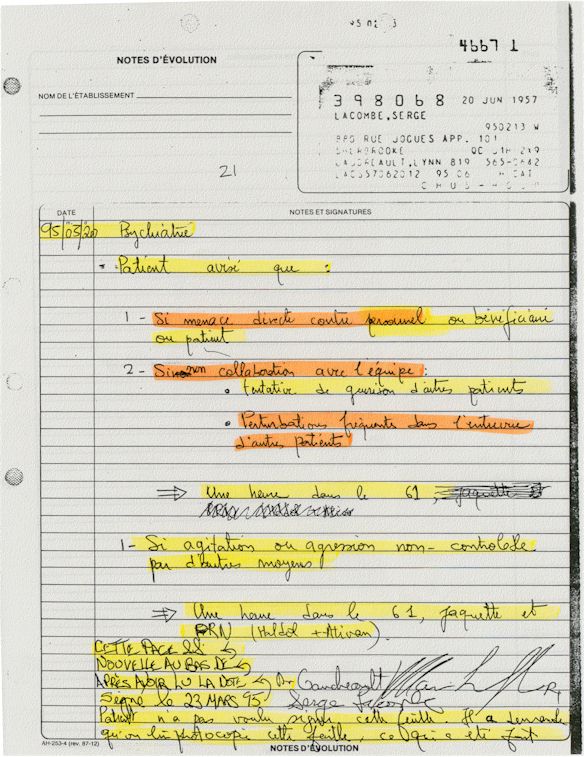 4667 1
NOTES D'ÉVOLUTION
NOM DE L'ÉTABLISSEMENT
398068 20 JUN 1957
LACOMBE, SERGE
950213 W
RUE JOGUES APP. 101
SHERBROOKE QC J1H 2X9
LYNN 819
21
DATE NOTES ET SIGNATURES
95/03/20 Psychiatrie
Patient avisé que :
1 - Si menace directe contre personnel ou bénéficiaire
ou patient
2 - Si non collaboration avec l'équipe :
• tentative de guérison d'autres patients
• Perturbations fréquentes dans l'entrevue
d'autres patients
⇒ Une heure dans le 61, jaquette
1- Si agitation ou agression non-contrôlable
par d'autres moyens
⇒ Une heure dans le 61, jaquette et
PRN (Haldol + Ativan).
CETTE PAGE
NOUVELLE AU BAS DE
APRÈS AVOIR LU LA NOTE Dr
Signé le 23 MARS 95 Serge Lacombe
Patient n'a pas voulu signer cette feuille. Il a demandé
qu'on lui photocopie cette feuille, ce qui a été fait
AH-253-4 (rev. 87-12) NOTES D'ÉVOLUTION